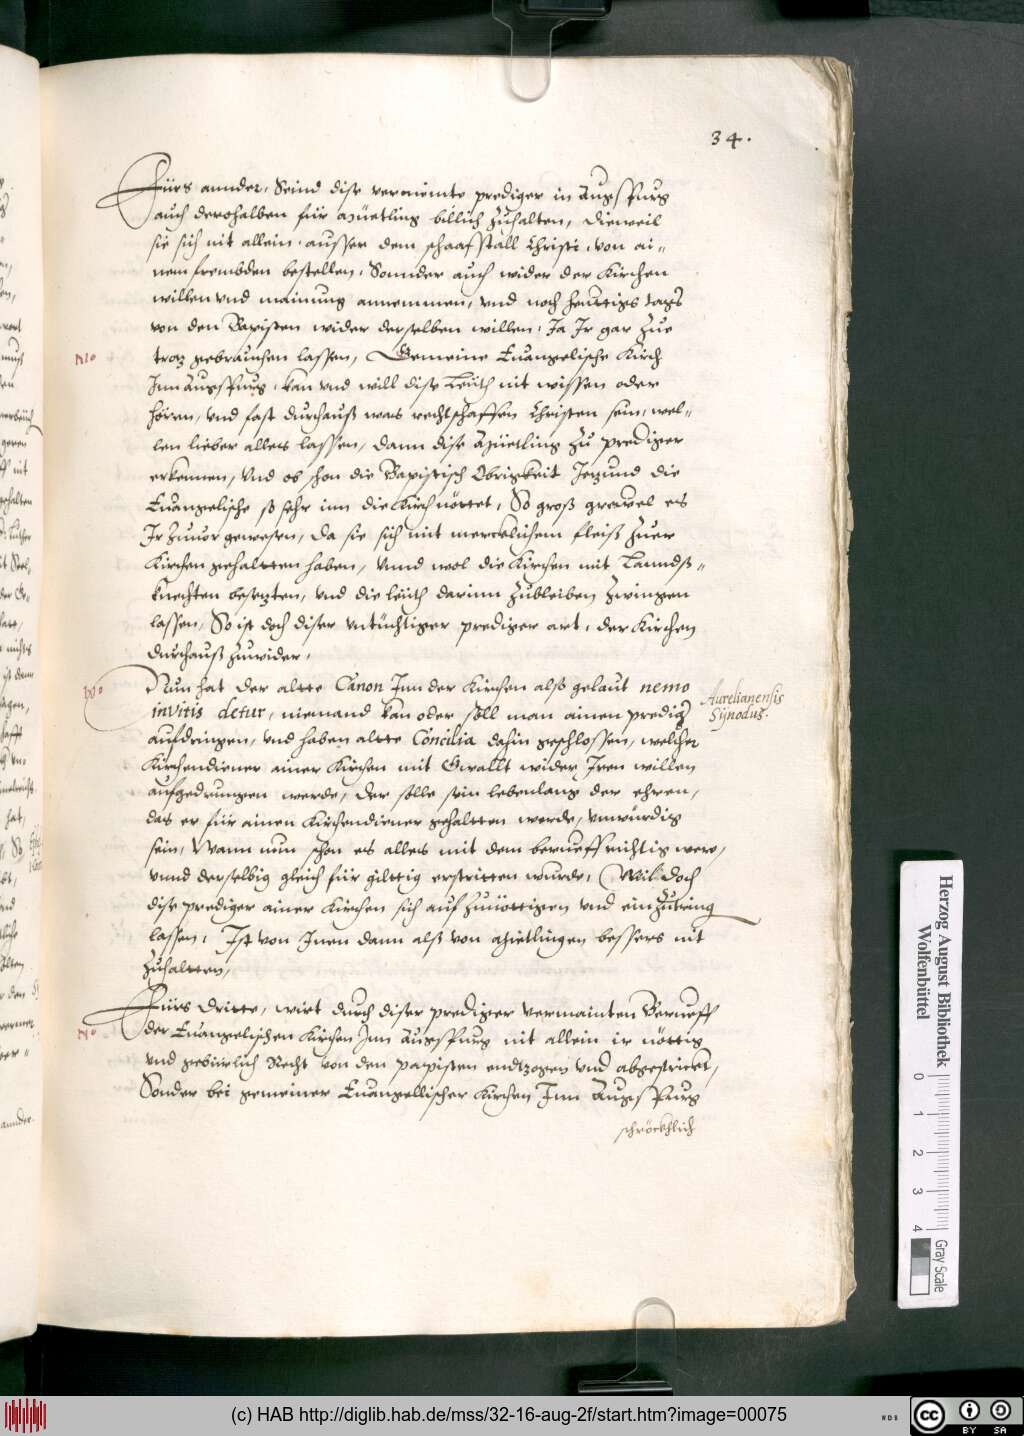 34.
Fürs annder, Seind dise vermeinte prediger in Augsspurg
auch derohalben für Müetling billich Zuhalten, Dieweil
sie sich nit allein ausser dem schaafstall Christi, von ai=
nem frembden bestellen, Sonnder auch wider der Kirchen
willen vnd mainung annemmen, vnd noch heuttigs tags
von den Papisten wider derselben willen, Ja Ir gar Zue
traz gebrauchen lassen, Gemeine Euangelische Kirch
Inn Augsspurg, kan vnd will dise Leüth nit wissen oder
hören, vnd fast durchauß was rechtschaffen Christen sein, wel=
len lieber alles lassen, dann dise Müetling Zu prediger
erkennen, Vnd ob schon die Papistisch Obrigkeit Jezund die
Euangelische so sehr inn die Kirch nöttet, So groß grewel es
Ir Zuuor gewesen, da sie sich mit mercklichem fleiß Zuer
Kirchen gehaltten haben, Vnnd wol die Kirchen mit Lanndß=
knechten besezten, vnd die leüth darinn Zubleiben Zwingen
lassen, So ist doch diser vntüchtiger prediger art, der Kirchen
durchauß Zuwider,
No
Nun hat der altte Canon Inn der Kirchen alß gelaut nemo
invitis detur, niemand kan oder soll man ainen predig
aufdringen, vnd haben altte Concilia dahin geschlossen, welcher
Kirchendiener ainer Kirchen mit Gwallt wider Iren willen
aufgedrungen werde, der solle sein lebenlang der ehren,
das er für ainen Kirchendiener gehaltten werde, vnwürdig
sein, Wann nun schon es alles mit dem berueff richtig were,
vnnd derselbig gleich für gilttig erstritten wurde, Wil doch
dise prediger ainer Kirchen sich auf Zunöttigen vnd ein Zutring
lassen, Ist von Inen dann alß von Mietlingen bessers nit
Zuhaltten,
Aurelianensis
Synodus.
No
Fürs dritte, wirt durch diser prediger vermainten Berueff
der Euangelischen Kirchen Inn Augsspurg nit allein ir nöttig
vnd gebürlich Recht von den papisten endtzogen vnd abgestrickt,
Sonder bei gemeiner Euangellischer Kirchen Inn Augsspurg
schröckhlich
No
annder.
Herzog August Bibliothek
Wolfenbüttel
0 1 2 3 4
Gray Scale
(c) HAB http://diglib.hab.de/mss/32-16-aug-2f/start.htm?image=00075
WDB
cc
BY SA